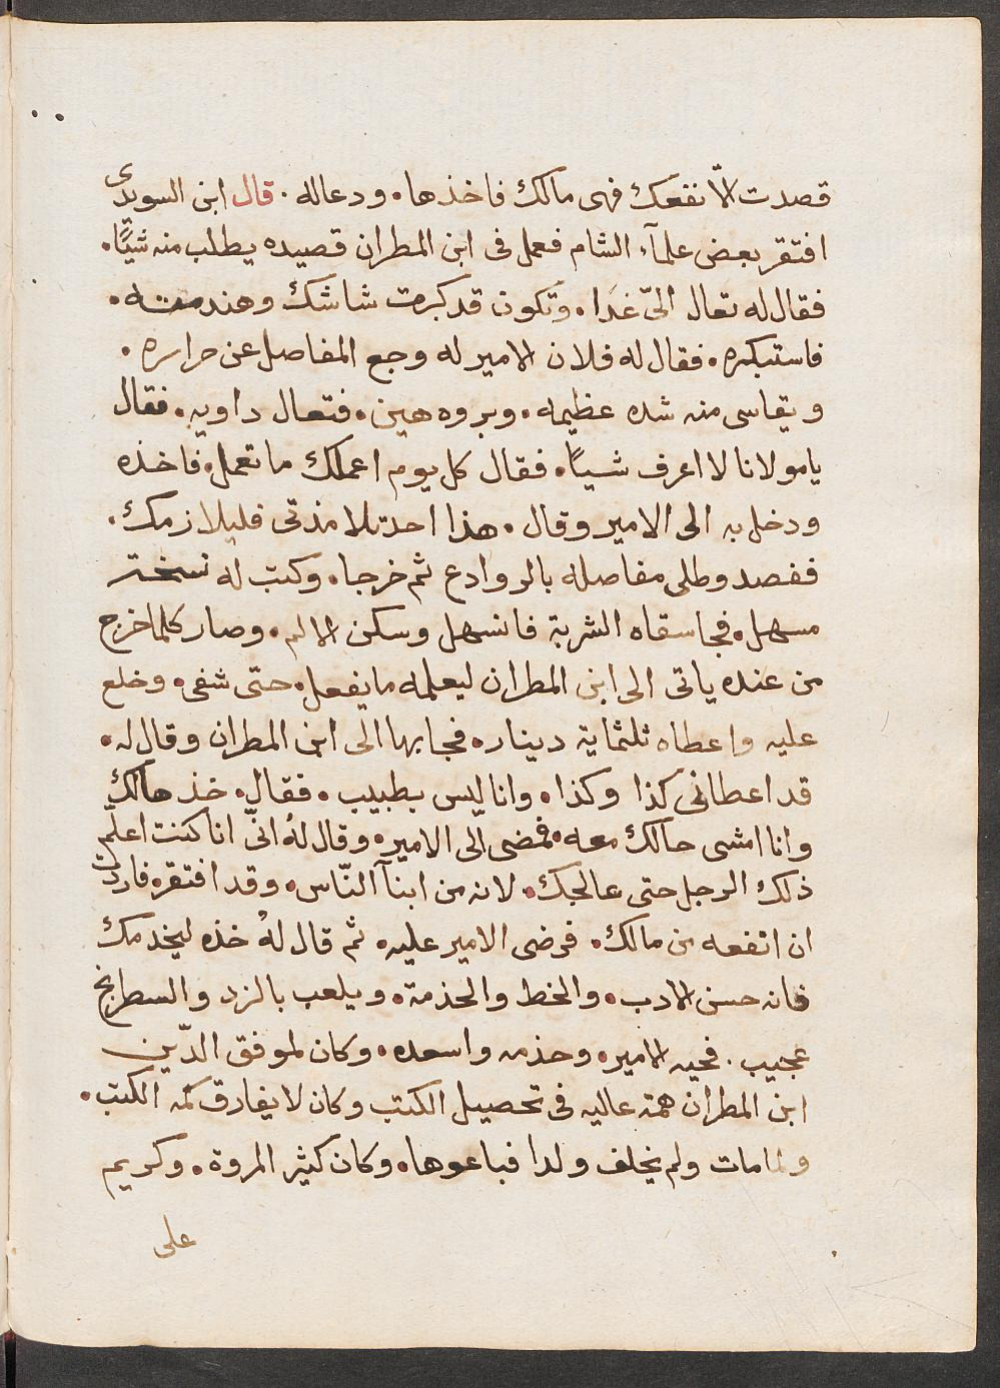 قصدت الّا نفعك فهى مالك فاخذها. ودعاله. قال ابن السويدى
افتقر بعض علمآء الشام فعمل فى ابن المطران قصيده يطلب منه شيًا.
فقال له تعال الىّ غدَا. وتكون قد كبرت شاشك وهندمته.
فاستبكره. فقال له فلان الامير له وجع المفاصل عن حراره.
ويقاسى منه شده عظيمه. وبروه هين. فتعال داويه. فقال
يامولانا لا اعرف شيًا. فقال كل يوم اعملك ما تعمل. فاخذه
ودخل به الى الامير وقال. هذا احد تلامذتى فليلازمك.
ففصد وطلى مفاصله بالروادع ثم خرجا. وكتب له نسخة
مسهل. فجا سقاه الشربة فانسهل وسكن الالم. وصار كلما خرج
من عنده ياتى الى ابن المطران ليعلمه ما يفعل. حتى شفى. وخلع
عليه واعطاه ثلثماية دينار. فجا بها الى ابن المطران وقال له.
قد اعطانى كذا وكذا. وانا ليس بطبيب. فقال. خذ مالك
وانا امشى حالك معه. فمضى الى الامير. وقال لهُ انىّ انا كنت اعلّم
ذلك الرجل حتى عالجك. لانه من ابنآ النّاس. وقد افتقر. فاردت
ان انفعه من مالك. فرضى الامير عليه. ثم قال لهُ خذه ليخدمك
فانه حسن الادب. والخط والخذمة. ويلعب بالنرد والسطرنج
عجيب. فحبه الامير. وخذمه واسعده. وكان لموفق الدّين
ابن المطران همة عاليه فى تحصيل الكتب وكان لا يفارق كمه الكتب.
ولما مات ولم يخلف ولدا فباعوها. وكان كثير المروة. وكريم
على